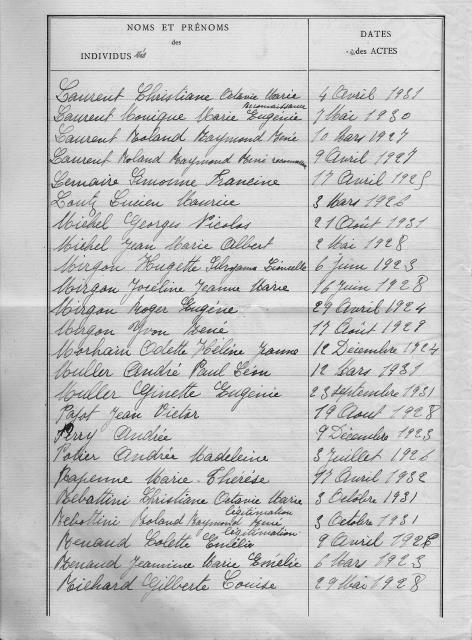 NOMS ET PRÉNOMS
des
INDIVIDUS nés
DATES
des ACTES
Laurent Christiane Octavie Marie 4 Avril 1931
Reconnaissance
Laurent Monique Marie Eugénie 7 Mai 1930
Laurent Roland Raymond René 10 Mars 1927
Laurent Roland Raymond René 9 Avril 1927
Lemaire Simonne Francine 17 Avril 1925
Loutz Lucien Maurice 3 Mars 1926
Michel Georges Nicolas 21 Août 1931
Michel Jean Marie Albert 2 Mai 1928
Mirgon Huguette 6 Juin 1923
Mirgon Jocéline Jeanne Marie 16 Juin 1928
Mirgon Roger Eugène 29 Avril 1924
Mirgon Yvon René 17 Août 1929
Morhain Odette Hélène Jeanne 12 Décembre 1924
Muller André Paul Léon 12 Mars 1931
Muller Ginette Eugénie 23 Septembre 1931
Payot Jean Victor 19 Aout 1928
Perry Andrée 9 Décembre 1923
Potier Andrée Madeleine 3 Juillet 1926
Rapenne Marie-Thérèse 17 Avril 1932
Rebattini Christiane Octavie Marie 3 Octobre 1931
Légitimation
Rebottini Roland Raymond René 3 Octobre 1931
Légitimation
Renaud Colette Emélie 9 Avril 1926
Renaud Jeannine Marie Emélie 6 Mars 1923
Richard Gilberte Louise 29 Mai 1928